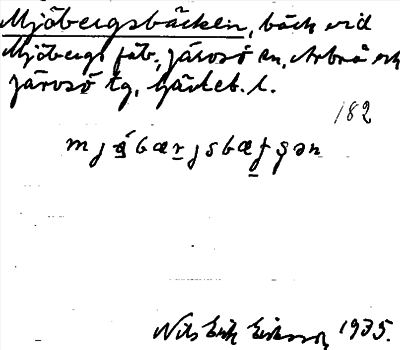 Mjöbergsbäcken, bäck vid
Mjöbergs fäb., Järvsö sn, Arbrå och
Järvsö tg, Gävleb. l.
182
Nils Erik Eriksson 1935.